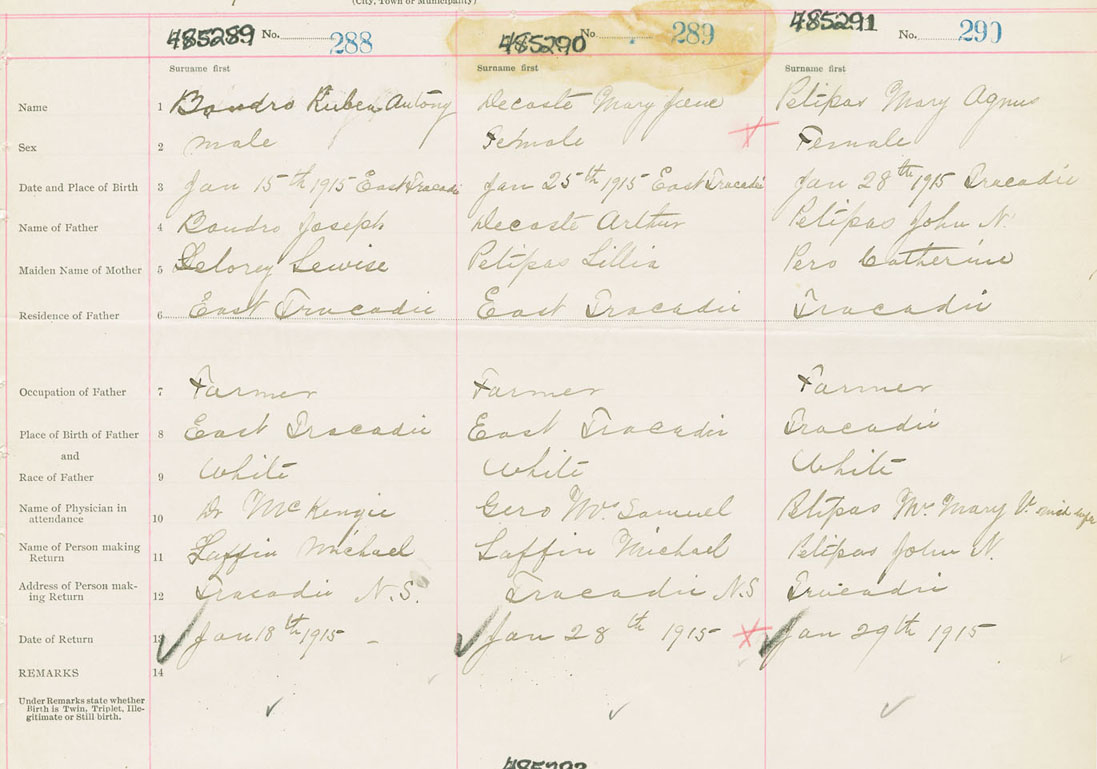 (City, Town or Municipality)
485289 No. 288 485290 No. 289 485291 No. 290
Surname first Surname first Surname first
Name 1 Bondro Ruben Antony Decoste Mary Jane Petipas Mary Agnus
Sex 2 male Female Female
Date and Place of Birth 3 Jan 15th 1915 East Tracadie Jan 25th 1915 East Tracadie Jan 28th 1915 Tracadie
Name of Father 4 Bondro Joseph Decoste Arthur Petipas John N.
Maiden Name of Mother 5 Delorey Lewise Petipas Lillia Pero Catherine
Residence of Father 6 East Tracadie East Tracadie Tracadie
Occupation of Father 7 Farmer Farmer Farmer
Place of Birth of Father 8 East Tracadie East Tracadie Tracadie
and
Race of Father 9 White White White
Name of Physician in
attendance 10 Dr McKenzie Gero Mrs Samuel Petipas Mrs Mary V. mid wife
Name of Person making
Return 11 Laffin Michael Laffin Michael Petipas John N.
Address of Person mak-
ing Return 12 Tracadie N.S. Tracadie N.S Tracadie
Date of Return 13 Jan 18th 1915 Jan 28th 1915 Jan 29th 1915
REMARKS 14
Under Remarks state whether
Birth is Twin, Triplet, Ille-
gitimate or Still birth.